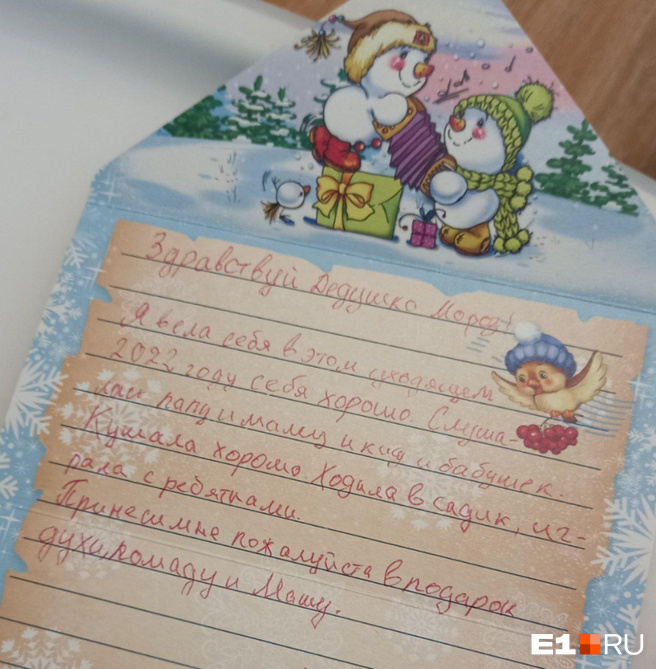 Здравствуй Дедушка Мороз!
Я вела себя в этом уходящем
2022 году себя хорошо. Слуша-
лай папу и маму и и бабушек.
Кушала хорошо. Ходила в садик, иг-
рала с ребятками.
Принеси мне пожалуйста в подарок
духи, помаду и Машу.
E1 RU